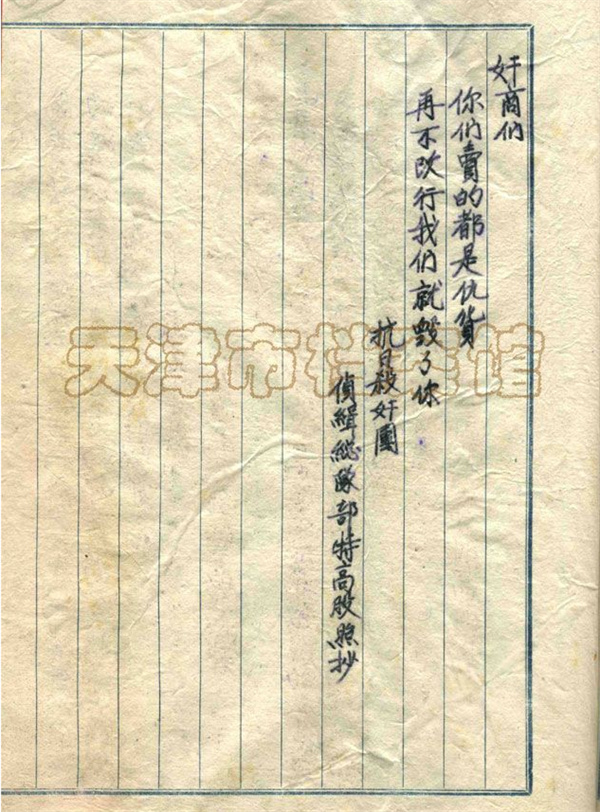 奸商们
你们賣的都是仇货
再不改行我们就毁了你.
抗日殺奸團
偵緝総隊部特高股照抄
天津市档案馆